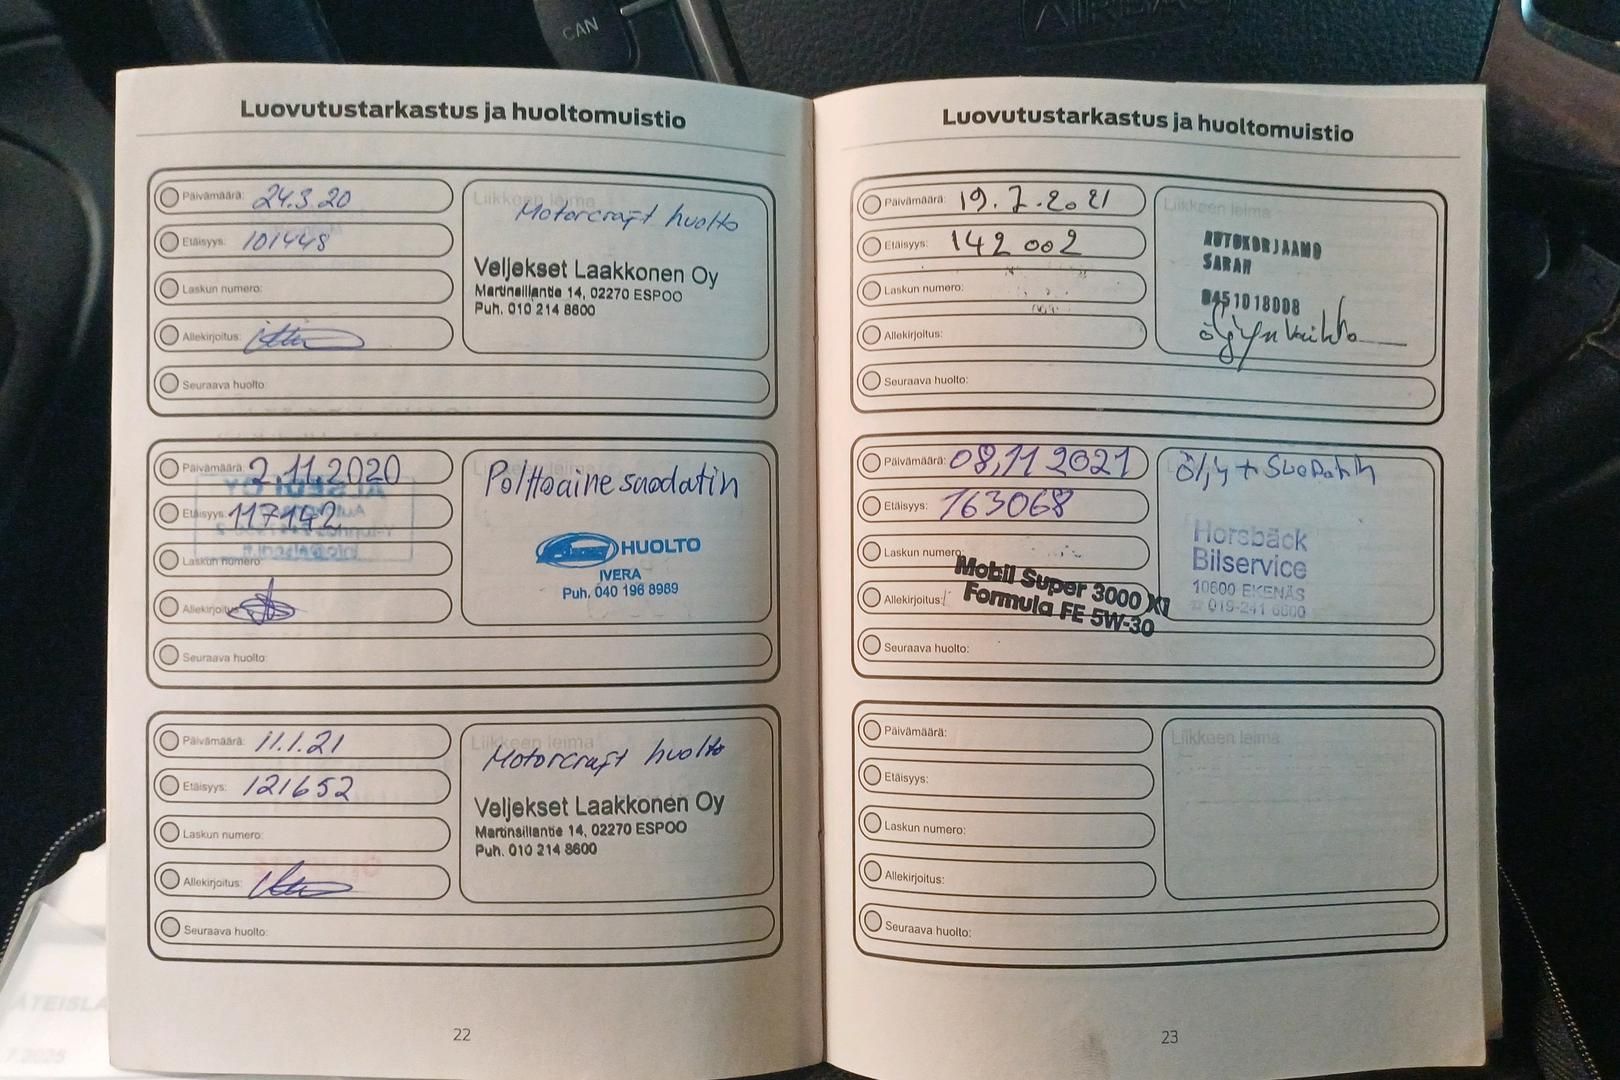 CAN
AIRBAG
Luovutustarkastus ja huoltomuistio
Päivämäärä: 24.3.20
Etäisyys: 101448
Laskun numero:
Allekirjoitus:
Seuraava huolto:
Liikkeen leima
Motorcraft huolto
Veljekset Laakkonen Oy
Martinsillantie 14, 02270 ESPOO
Puh. 010 214 8600
Päivämäärä: 2.11.2020
Etäisyys: 117142
Laskun numero:
Allekirjoitus:
Seuraava huolto:
Liikkeen leima
Polttoaine suodatin
HUOLTO
IVERA
Puh. 040 196 8989
Päivämäärä: 11.1.21
Etäisyys: 121652
Laskun numero:
Allekirjoitus:
Seuraava huolto:
Liikkeen leima
Motorcraft huolto
Veljekset Laakkonen Oy
Martinsillantie 14, 02270 ESPOO
Puh. 010 214 8600
22
Luovutustarkastus ja huoltomuistio
Päivämäärä: 19.7.2021
Etäisyys: 142 002
Laskun numero:
Allekirjoitus:
Seuraava huolto:
Liikkeen leima
AUTOKORJAAMO
SARAH
0451018008
Päivämäärä: 08,11 2021
Etäisyys: 163068
Laskun numero:
Allekirjoitus:
Mobil Super 3000 X1
Formula FE 5W-30
Seuraava huolto:
öljy + Suodatin
Horsbäck
Bilservice
10600 EKENÄS
☎ 019-241 6600
Päivämäärä:
Etäisyys:
Laskun numero:
Allekirjoitus:
Seuraava huolto:
Liikkeen leima
23